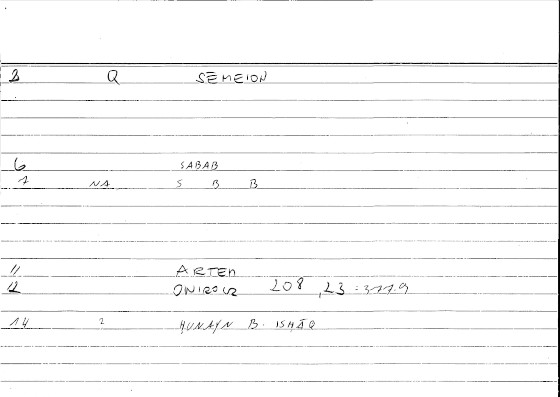 3 Q SĒMEION
6 SABAB
7 NA S B B
11 ARTEM
12 ONIROCR 208 , 23 = 377.9
14 2 HUNAYN B. ISHĀQ